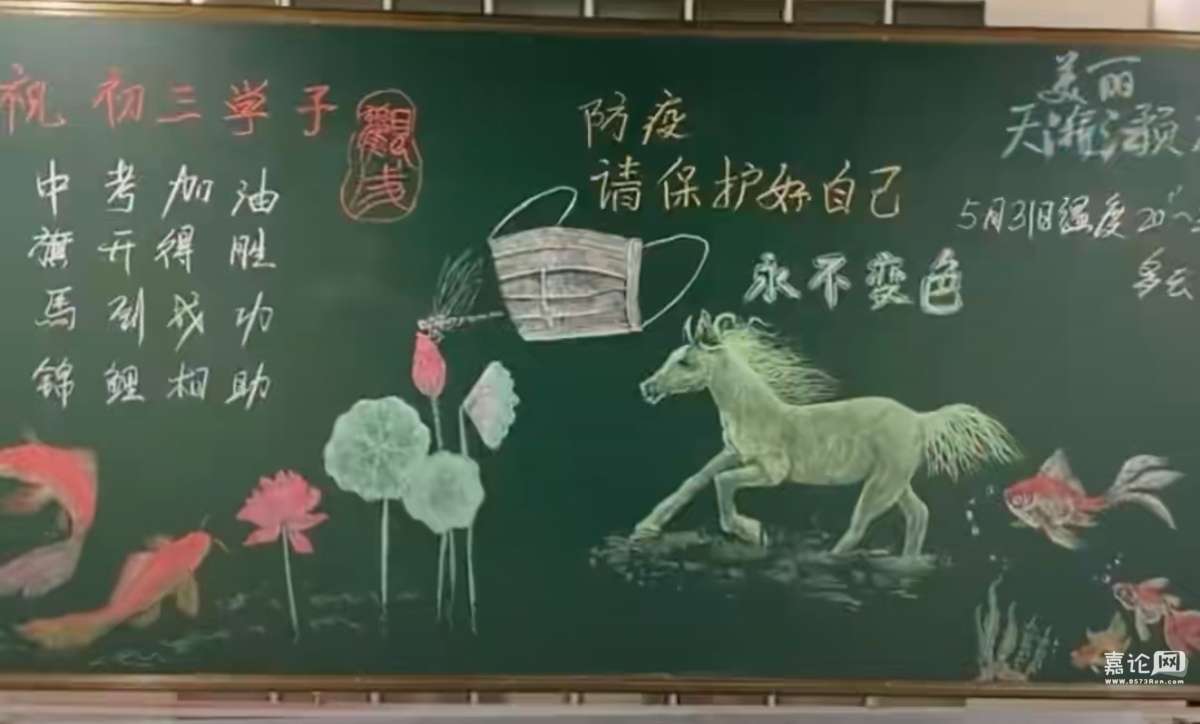 祝初三学子
中考加油
旗开得胜
馬到成功
錦鲤相助
防疫
请保护好自己
永不变色
美丽
5月31日温度20°~
多云
嘉论网
www.0573Ren.com